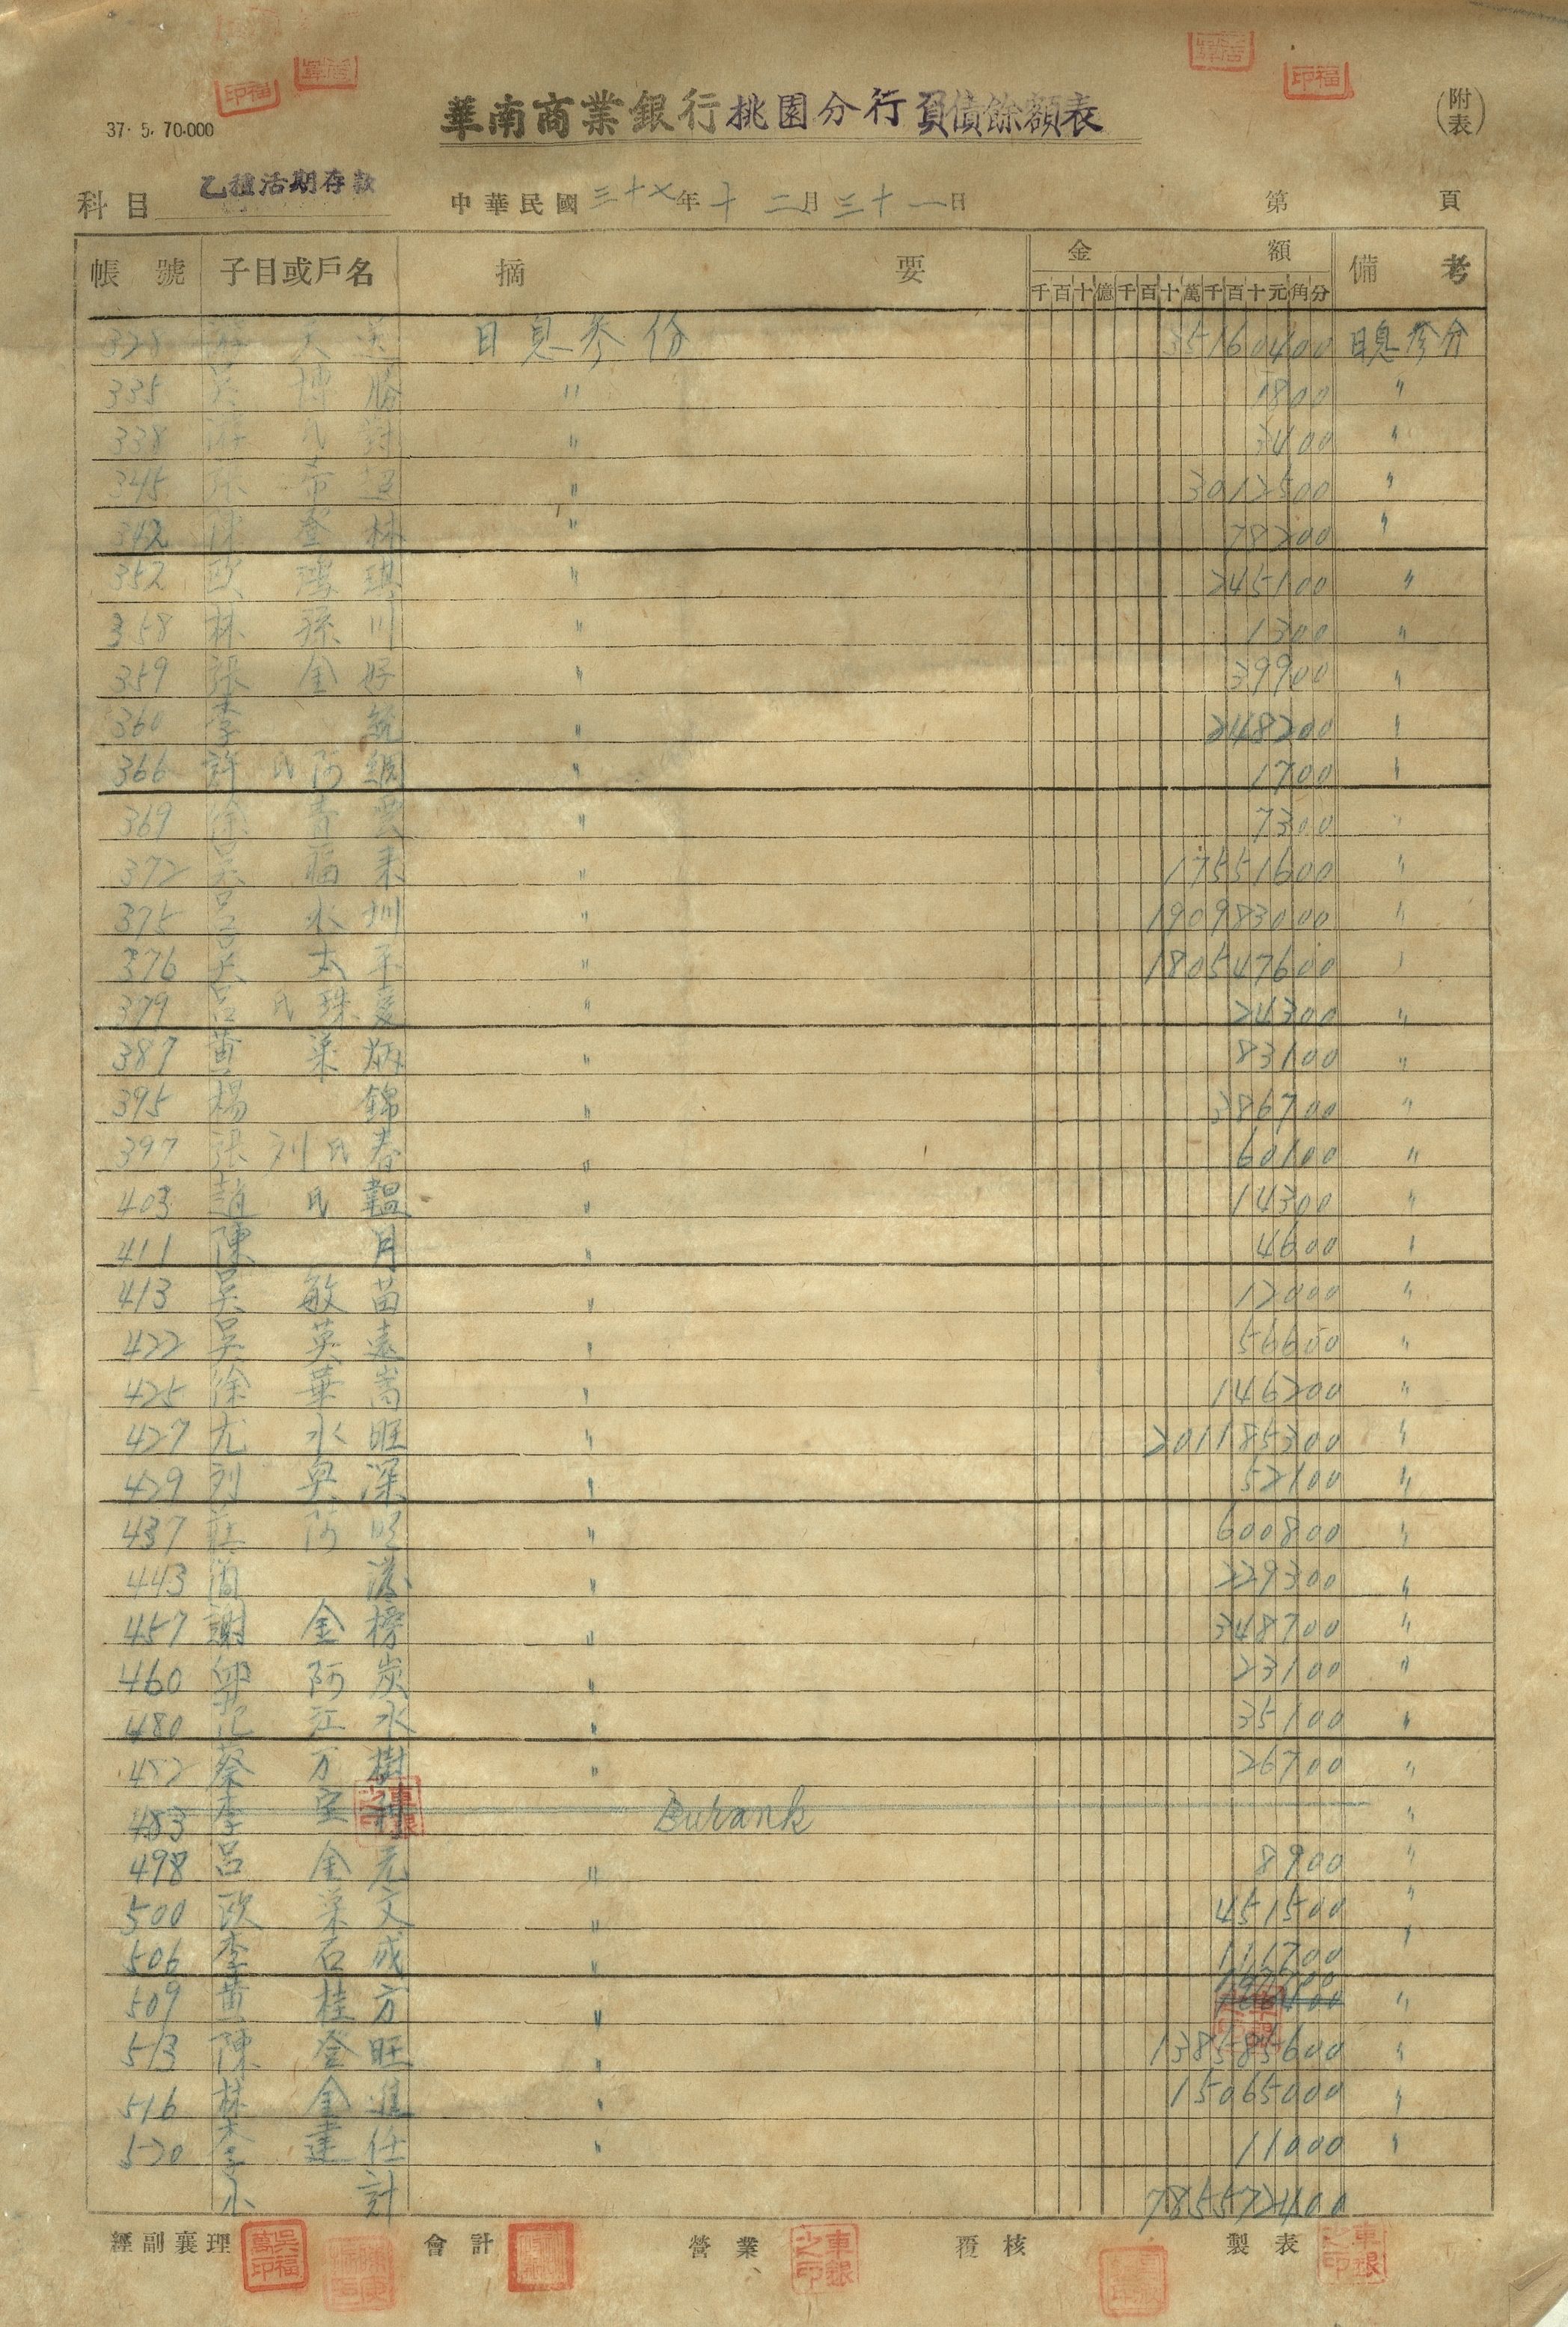 37. 5. 70.000
華南商業銀行桃園分行負債餘額表
(附表)
科目 乙種活期存款 中華民國三十七年十二月三十一日 第 頁
帳號 子目或戶名 摘要 金額 備考
千百十億千百十萬千百十元角分
328 日息參份 35160400 日息參分
335 吳 博 勝 〃 1800 〃
338 游 氏 〃 3400 〃
345 〃 3012500 〃
〃 78200 〃
352 歐 鴻 琪 〃 245100 〃
358 林 孫 川 〃 1300 〃
359 張 金 好 〃 39900 〃
360 李 〃 248200 〃
366 許 氏 阿 綢 〃 1700 〃
369 徐 青 雲 〃 7300 〃
372 福 來 〃 17551600 〃
375 呂 水 圳 〃 190983000 〃
376 吳 太 平 〃 180547600 〃
379 呂 氏 珠 愛 〃 24300 〃
387 黃 榮 炳 〃 83100 〃
395 楊 錦 〃 386700 〃
397 張 刘 氏 春 〃 60100 〃
403 趙 氏 韞 〃 14300 〃
411 陳 月 〃 4600 〃
413 吳 敏 苗 〃 12000 〃
422 吳 英 遠 〃 56600 〃
425 徐 華 嵩 〃 146200 〃
427 尤 水 旺 〃 201185300 〃
429 刘 與 深 〃 52100 〃
437 莊 阿 旺 〃 600800 〃
443 簡 〃 229300 〃
457 謝 金 榜 〃 348700 〃
460 邱 阿 炭 〃 23100 〃
480 范 江 水 〃 35100 〃
482 蔡 万 樹 〃 26700 〃
483 李 Burank 〃
498 呂 金 元 〃 8900 〃
500 歐 榮 文 〃 451500 〃
506 李 石 成 〃 111700 〃
509 黃 桂 方 〃 〃
513 陳 登 旺 〃 138585600 〃
516 林 金 進 〃 15065000 〃
520 李 建 任 〃 11000 〃
小 計 785572400
經副襄理 會計 營業 覆核 製表